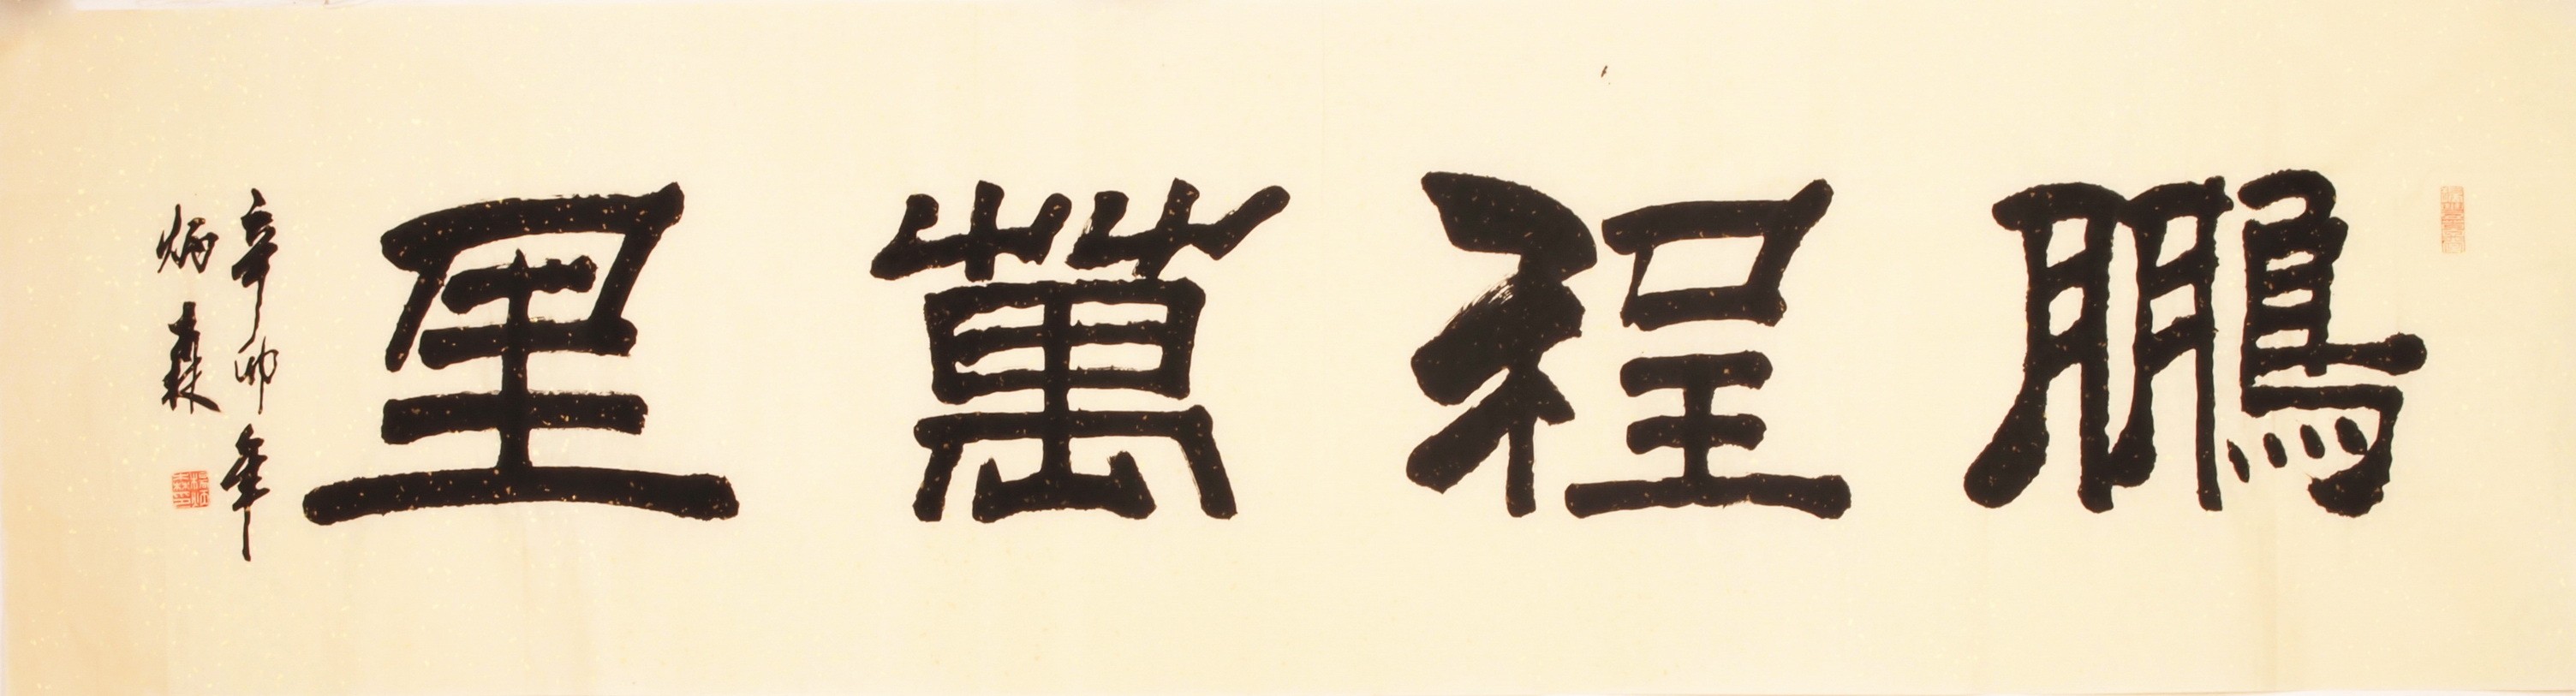 鵬程萬里
辛卯年
炳森